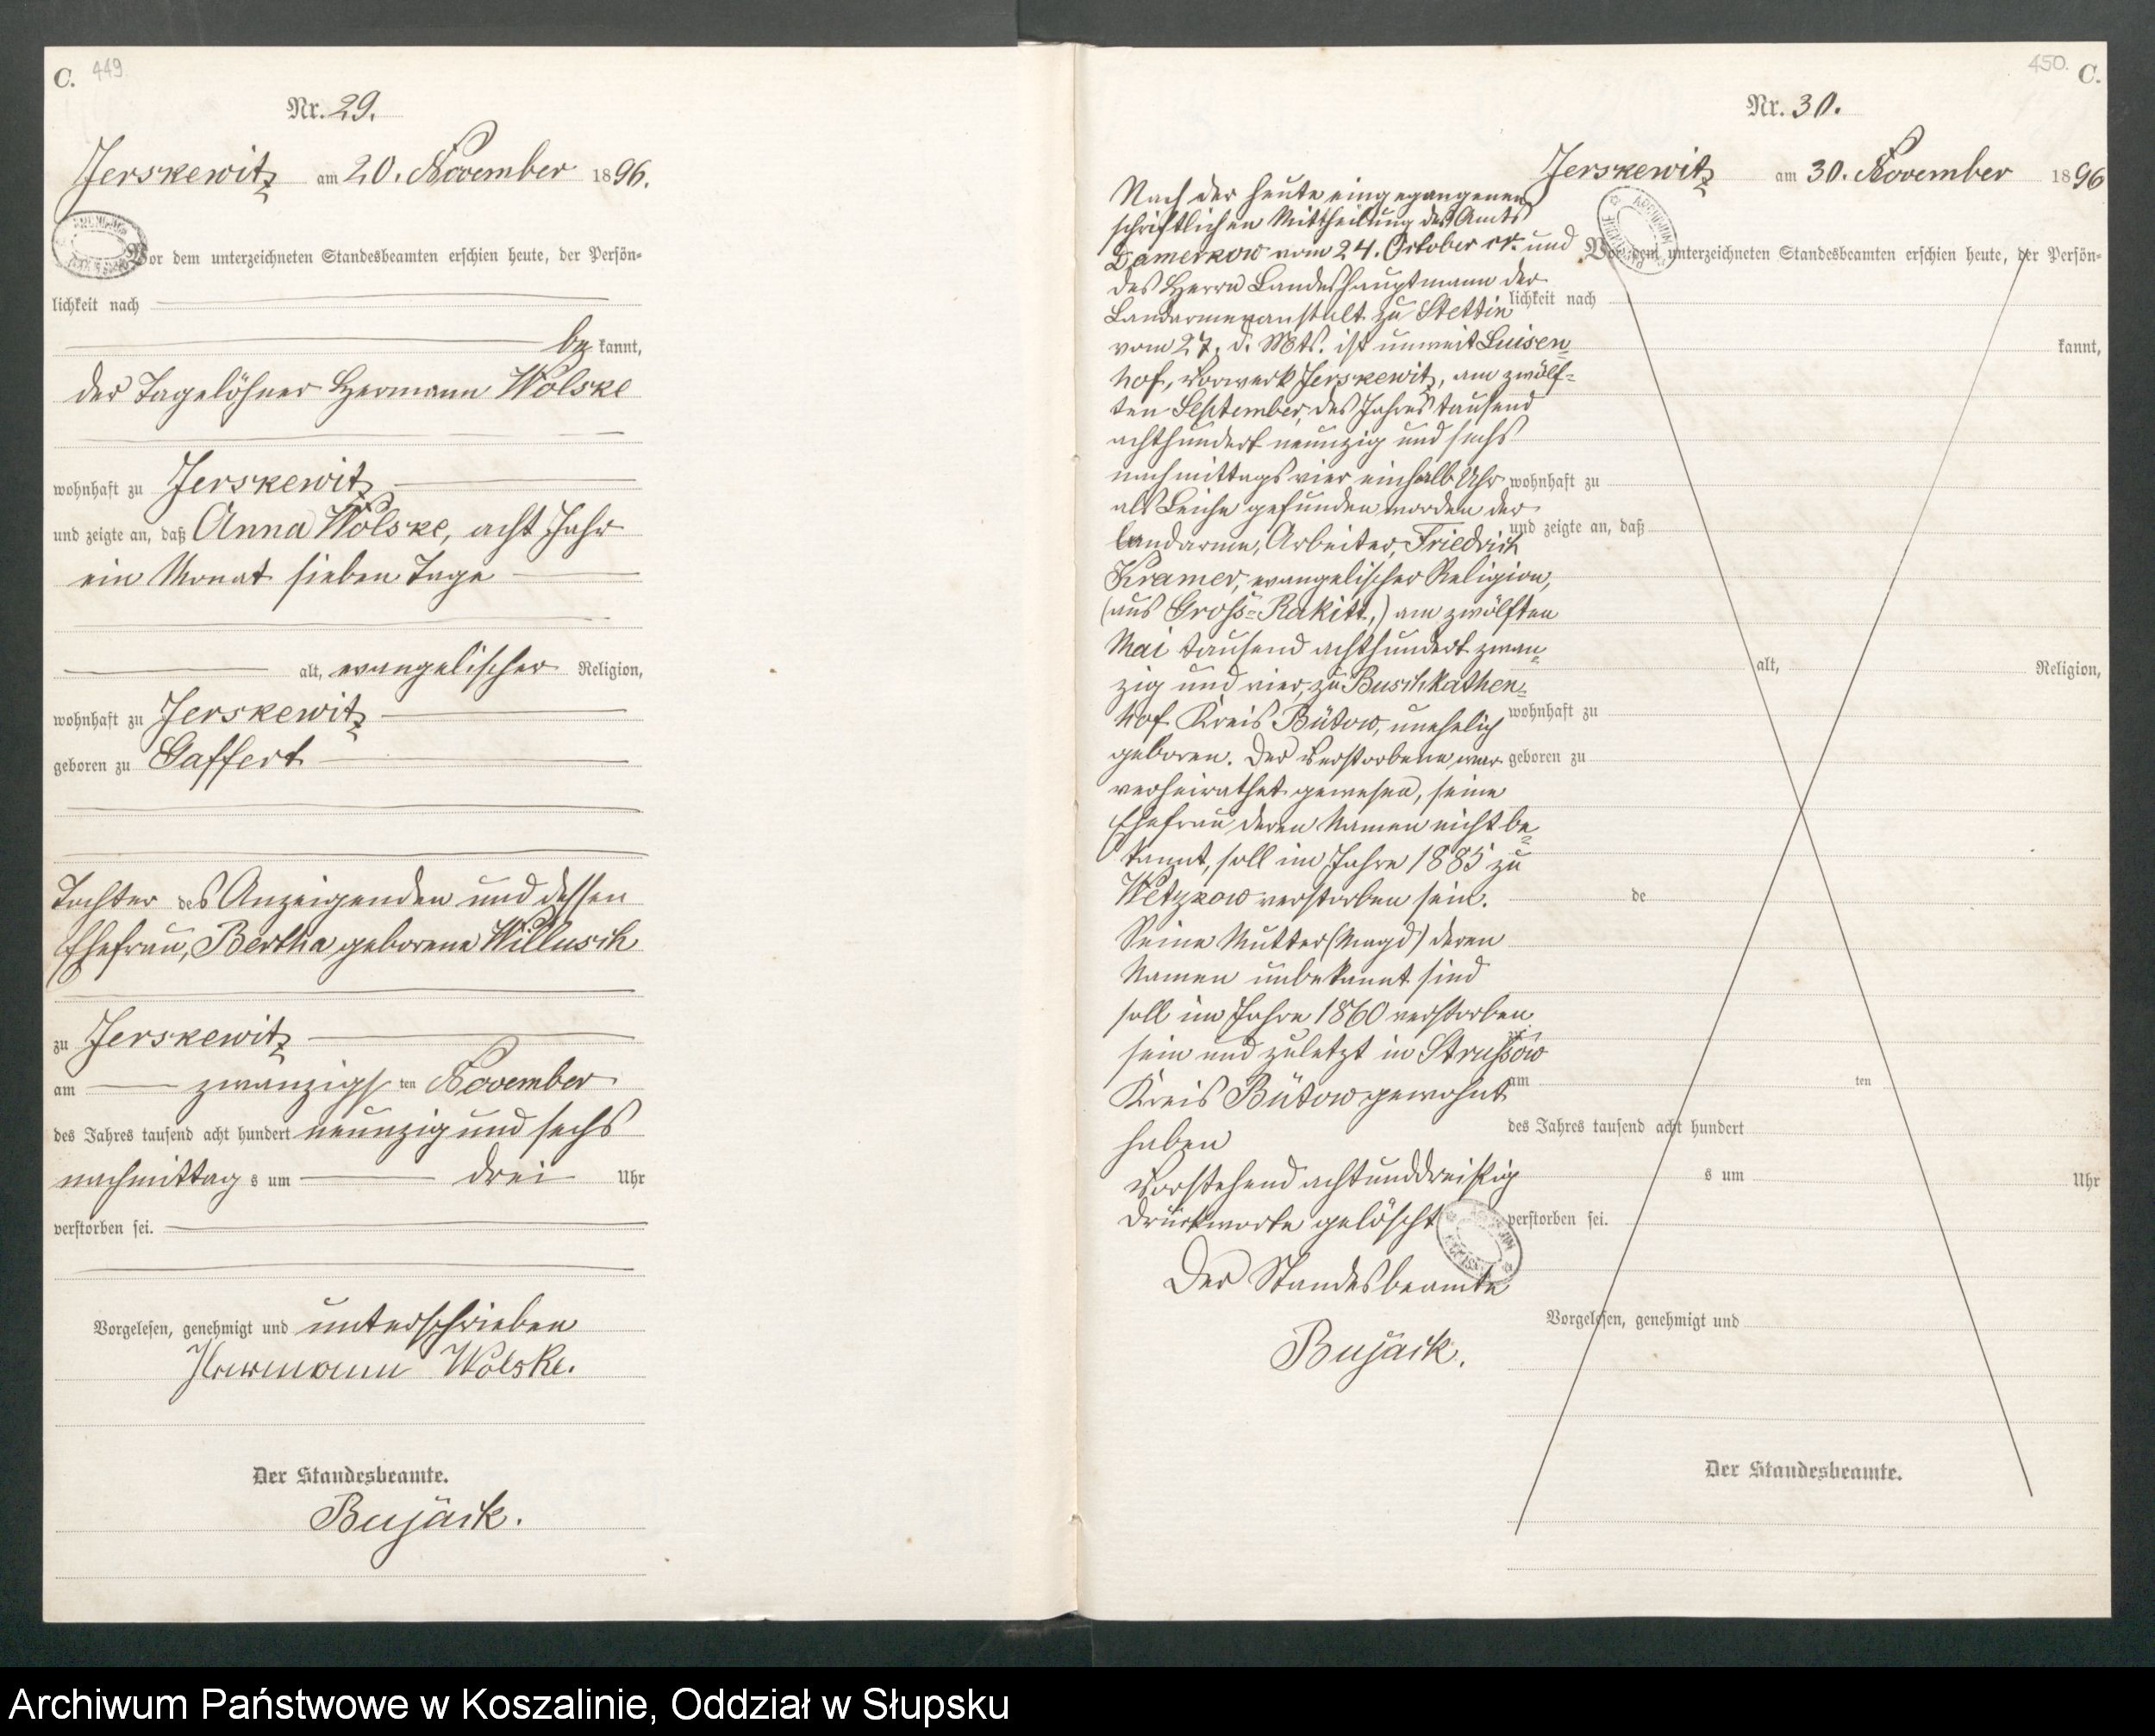 C. 449.
Nr. 29.
Jerskewitz am 20. November 1896.
Vor dem unterzeichneten Standesbeamten erschien heute, der Persön-
lichkeit nach
be kannt,
der Tagelöhner Hermann Wolske
wohnhaft zu Jerskewitz
und zeigte an, daß Anna Wolske, acht Jahr
ein Monat sieben Tage
alt, evangelischer Religion,
wohnhaft zu Jerskewitz
geboren zu Gaffert
Tochter des Anzeigenden und dessen
Ehefrau, Bertha geborene Willusch
zu Jerskewitz
am zwanzigs ten November
des Jahres tausend acht hundert neunzig und sechs
nachmittag s um drei Uhr
verstorben sei.
Vorgelesen, genehmigt und unterschrieben
Hermann Wolske.
Der Standesbeamte.
Bujack.
450. C.
Nr. 30.
Jerskewitz am 30. November 1896
Nach der heute eingegangenen
schriftlichen Mittheilung des Amts
Damerkow vom 24. October cr. und
des Herrn Landeshauptmann der
Landarmenanstalt zu Stettin
vom 27. d. Mts. ist unweit Luisen-
hof, Vorwerk Jerskewitz, am zwölf-
ten September, des Jahres tausend
achthundert neunzig und sechs
nachmittags vier einhalb Uhr
als Leiche gefunden worden der
Landarme, Arbeiter, Friedrich
Kramer, evangelischer Religion,
(aus Gross-Rakitt,) am zwölften
Mai tausend achthundert zwan-
zig und vier, zu Buschkathen-
hof Kreis Bütow, unehelich
geboren. Der Verstorbene war
verheirathet gewesen, seine
Ehefrau deren Namen nicht be-
kannt, soll im Jahre 1885 zu
Wetzkow verstorben sein.
Seine Mutter (Magd) deren
Namen unbekannt sind
soll im Jahre 1860 verstorben
sein und zuletzt in Strussow
Kreis Bütow gewohnt
haben
Vorstehend achtunddreißig
Druckworte gelöscht
Der Standesbeamte
Bujack.
Vor dem unterzeichneten Standesbeamten erschien heute, der Persön-
lichkeit nach
kannt,
wohnhaft zu
und zeigte an, daß
alt, Religion,
wohnhaft zu
geboren zu
de
am ten
des Jahres tausend acht hundert
s um Uhr
verstorben sei.
Vorgelesen, genehmigt und
Der Standesbeamte.
Archiwum Państwowe w Koszalinie, Oddział w Słupsku